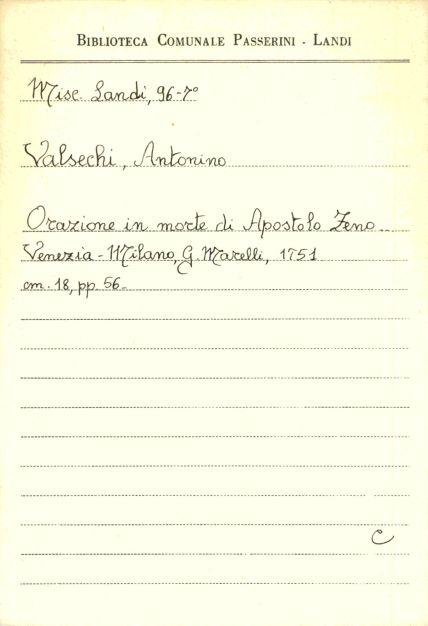 BIBLIOTECA COMUNALE PASSERINI - LANDI
Misc. Landi, 96-7°
Valsechi, Antonino
Orazione in morte di Apostolo Zeno_
Venezia - Milano, G. Marelli, 1751
cm. 18, pp. 56_
C